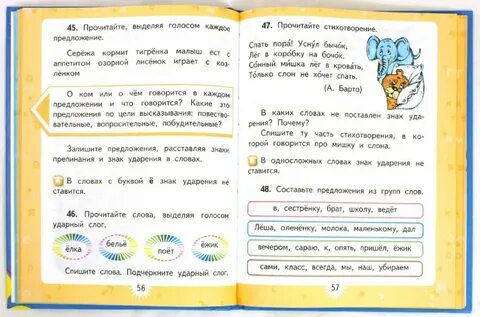 45. Прочитайте, выделяя голосом каждое
предложение.
Серёжа кормит тигрёнка малыш ест с
аппетитом озорной лисёнок играет с коз-
лёнком
О ком или о чём говорится в каждом
предложении и что говорится? Какие это
предложения по цели высказывания: повество-
вательные, вопросительные, побудительные?
Запишите предложения, расставляя знаки
препинания и знак ударения в словах.
В словах с буквой ё знак ударения не
ставится.
46. Прочитайте слова, выделяя голосом
ударный слог.
ёлка бельё поёт ёжик
Спишите слова. Подчеркните ударный слог.
56
47. Прочитайте стихотворение.
Спать пора! Уснул бычок,
Лёг в коробку на бочок.
Сонный мишка лёг в кровать,
Только слон не хочет спать.
(А. Барто)
В каких словах не поставлен знак уда-
рения? Почему?
Спишите ту часть стихотворения, в ко-
торой говорится про мишку и слона.
В односложных словах знак ударения не
ставится.
48. Составьте предложения из групп слов.
в, сестрёнку, брат, школу, ведёт
Лёша, оленёнку, молока, маленькому, дал
вечером, сараю, к, опять, пришёл, ёжик
сами, класс, всегда, мы, наш, убираем
57